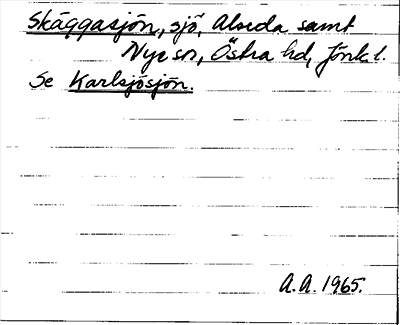 Skäggasjön, sjö, Alseda samt
Nye sn, Östra hd, Jönk. l.
Se Karlsjösjön.
A.A. 1965.